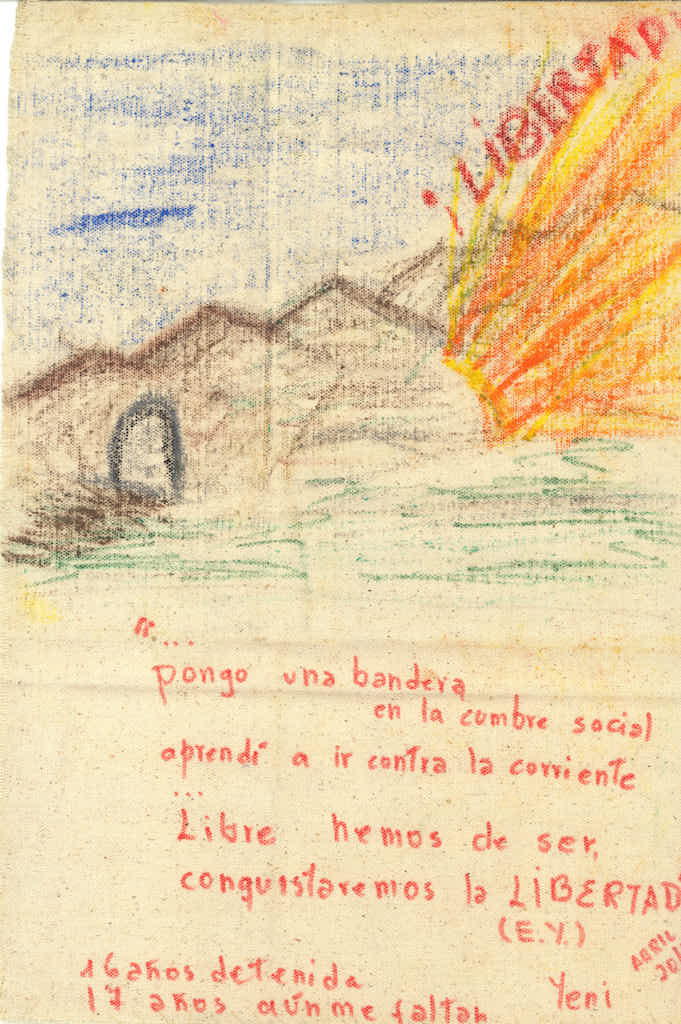 ¡LIBERTAD
"...
pongo una bandera
en la cumbre social
aprendí a ir contra la corriente
...
Libre hemos de ser,
conquistaremos la LIBERTAD
(E.Y.)
ABRIL
16 años detenida
Yeni
17 años aún me faltan